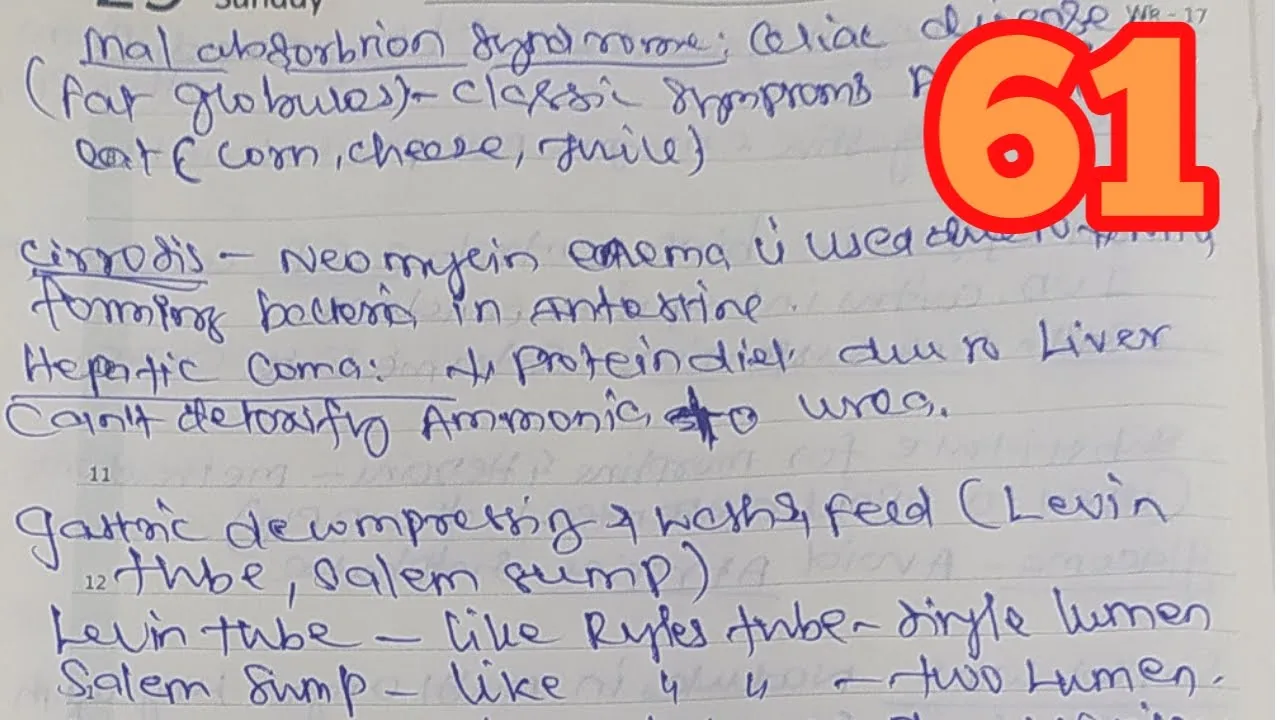 Sunday
WB - 17
Mal absorbtion syndrome: Celiac disease
(fat globules) - classic symptoms
eat (corn, cheese, juice)
61
Cirrosis - Neomycin enema is used due to
forming bacteria in Intestine.
Hepatic Coma: ↓ protein diet due to Liver
Can't detoxify Ammonia to urea.
11
gastric decompressing & wash & feed (Levin
12 tube, Salem sump)
Levin tube - like Ryles tube - single lumen
Salem sump - like " " - two Lumen.